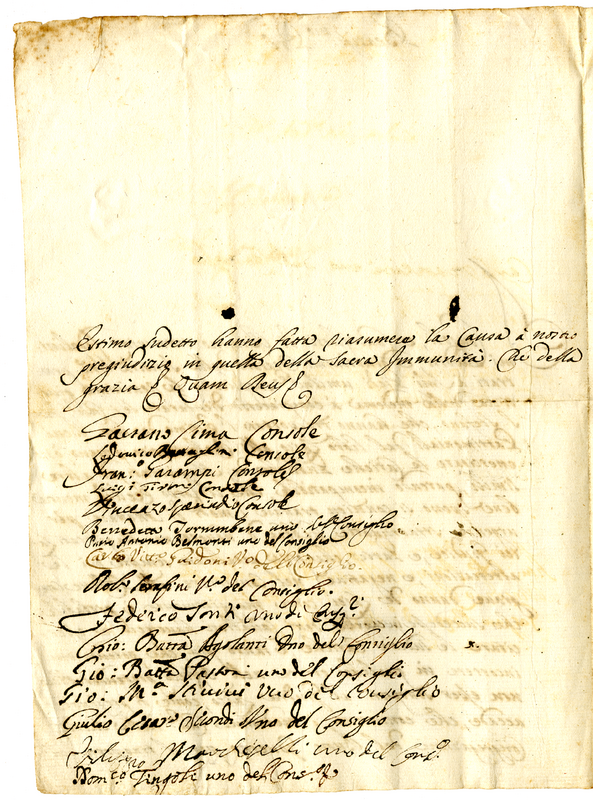 Estimo sudetto hanno fatta riasumere la Causa à nostro
pregiudizio in quella della sacra Immunità. Che della
grazia &. Quam Deus &.
Gaetano Cima Console
Lodovico Battaglini Console
Fran.º Garampi Console
Luigi Console
Console
Benedetto uno del Consiglio
Purio Antonio Belmonti uno del Consiglio
Carlo del Consiglio.
Rob.º Serafini V.º del Consiglio.
Federico uno di
Batta Agolanti Uno del Consiglio
Gio: Batta Pastoni uno del Consiglio
Gio: M.ª Uno del Consiglio
Giulio Cesare Uno del Consiglio
Marcheselli uno del Con.º
Dom.co Tingoli uno del Cons.º